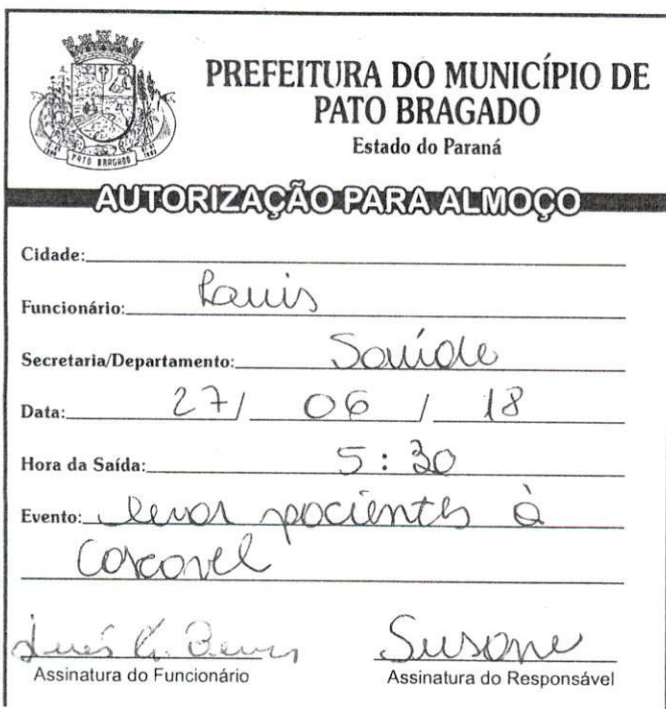 PREFEITURA DO MUNICÍPIO DE
PATO BRAGADO
Estado do Paraná
PATO BRAGADO
AUTORIZAÇÃO PARA ALMOÇO
Cidade:
Funcionário:
Secretaria/Departamento: Saúde
Data: 27/ 06 / 18
Hora da Saída: 5:30
Evento: levar pacientes à
Cascavel
Susane
Assinatura do Funcionário Assinatura do Responsável